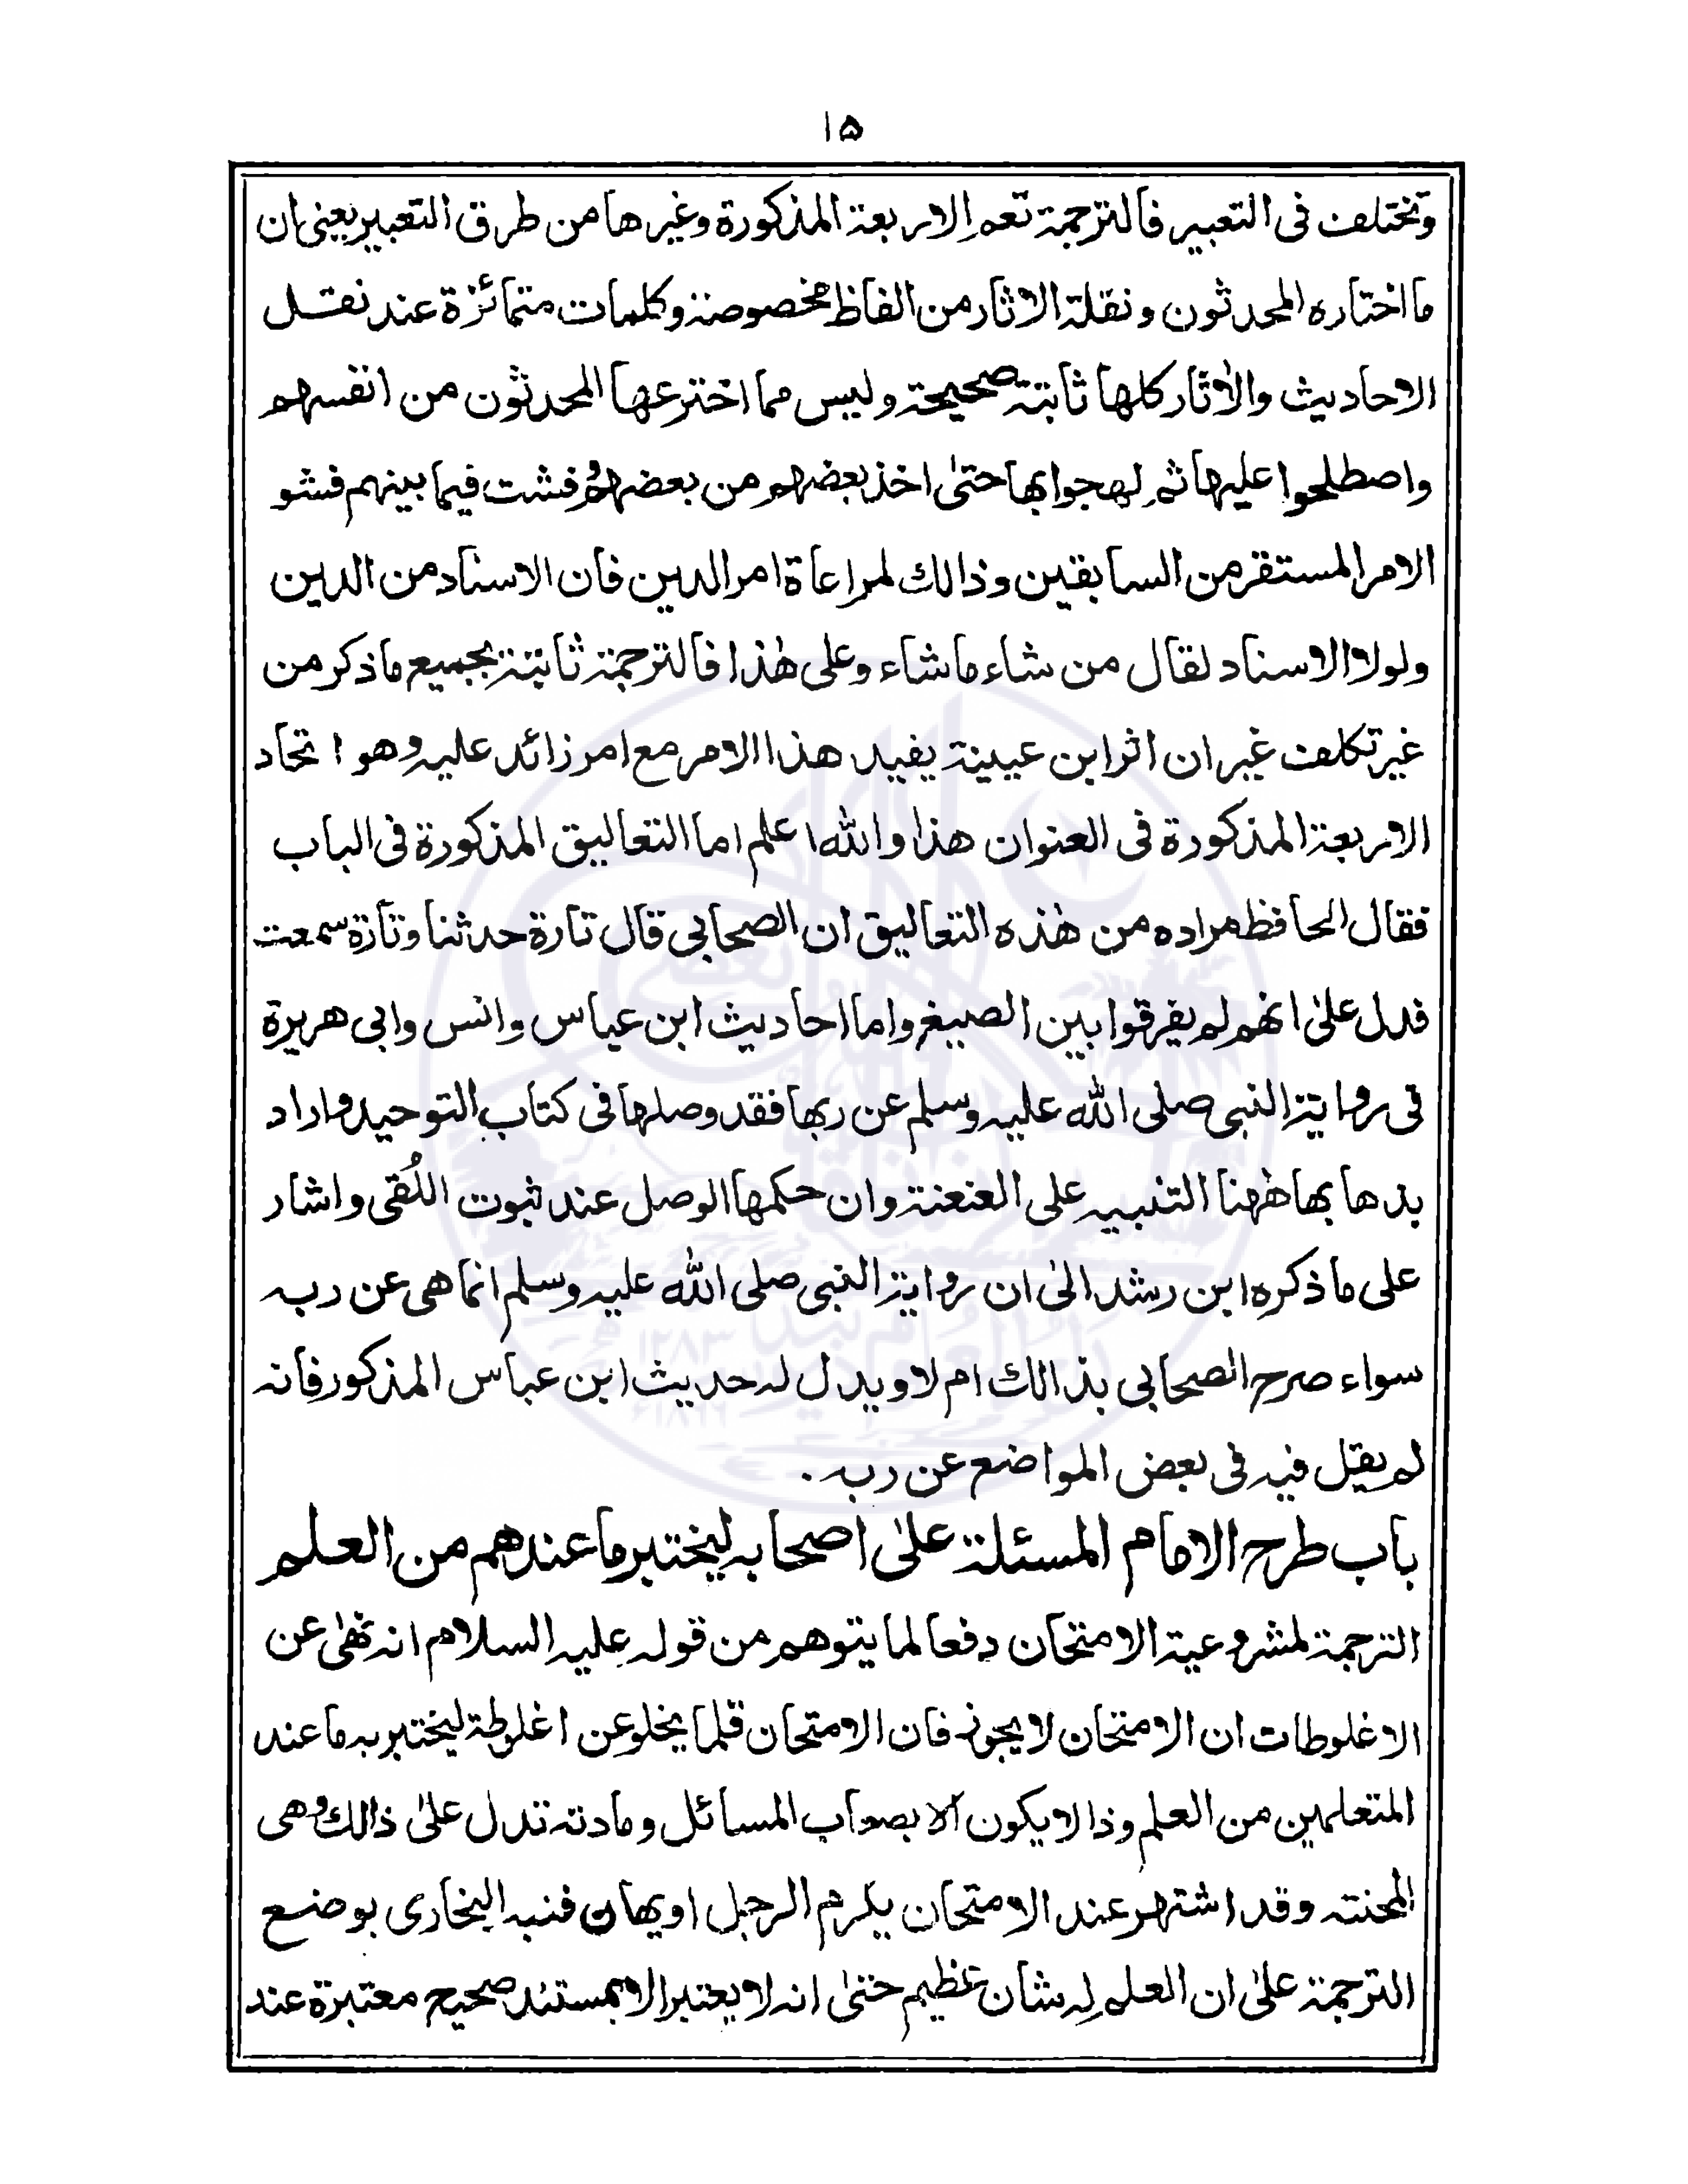 ١٥
وتختلف فى التعبير فالترجمة تعم الاربعة المذكورة وغيرها من طرق التعبير يعنى ان
ما اختاره المحدثون ونقلة الاثار من الفاظ مخصوصة وكلمات متمائزة عند نقل
الاحاديث والاٰثار كلها ثابتة صحيحة وليس مما اخترعها المحدثون من انفسهم
واصطلحوا عليها ثم لهجوا بها حتىٰ اخذ بعضهم من بعضهم وفشت فيما بينهم فشو
الامر المستقر من السابقين وذالك لمراعاة امر الدين فان الاسناد من الدين
ولولا الاسناد لقال من شاء ما شاء وعلى هٰذا فالترجمة ثابتة بجميع ما ذكر من
غير تكلف غير ان اثر ابن عيينة يفيد هذا الامر مع امر زائد عليه وهو اتحاد
الاربعة المذكورة فى العنوان هذا والله اعلم اما التعاليق المذكورة فى الباب
فقال الحافظ مراده من هٰذه التعاليق ان الصحابى قال تارة حدثنا وتارة سمعت
فدل علىٰ انهم لم يفرقوا بين الصيغ واما احاديث ابن عباس وانس وابى هريرة
فى رواية النبى صلى الله عليه وسلم عن ربها فقد وصلها فى كتاب التوحيد واراد
بذها بها هٰهنا التنبيه على العنعنة وان حكمها الوصل عند ثبوت اللُقى واشار
على ما ذكره ابن رشد الىٰ ان رواية النبى صلى الله عليه وسلم انما هى عن ربه
سواء صرح الصحابى بذالك ام لا ويدل له حديث ابن عباس المذكور فانه
لم يقل فيه فى بعض المواضع عن ربه .
باب طرح الامام المسئلة علىٰ اصحابه ليختبر ما عندهم من العلم
الترجمة لمشروعية الامتحان دفعا لما يتوهم من قوله عليه السلام انه نهىٰ عن
الاغلوطات ان الامتحان لا يجوز فان الامتحان قلما يخلو عن اغلوطة ليختبر به ما عند
المتعلمين من العلم وذا لا يكون الا بصعاب المسائل ومادته تدل علىٰ ذالك وهى
المحنته وقد اشتهر عند الامتحان يكرم الرجل او يهان فنبه البخارى بوضع
الترجمة علىٰ ان العلم له شان عظيم حتىٰ انه لا يعتبر الا بمستند صحيح معتبرة عند